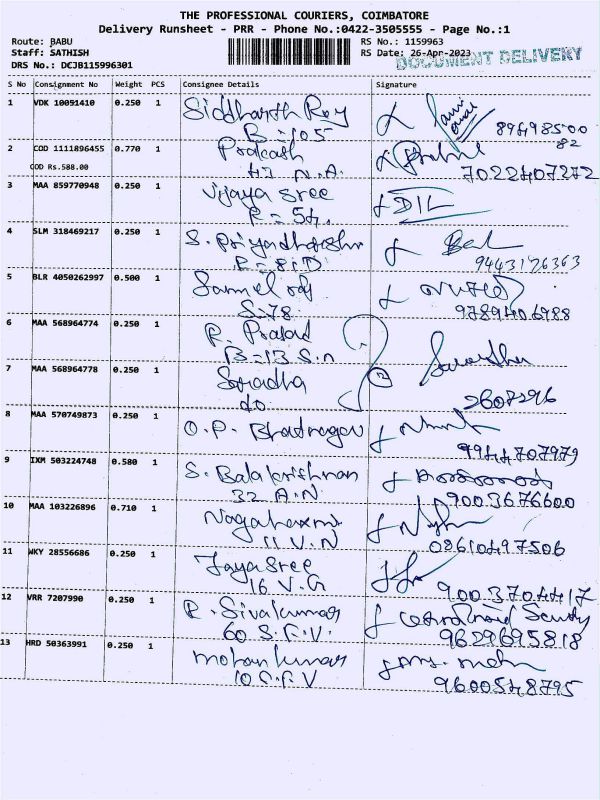 THE PROFESSIONAL COURIERS, COIMBATORE
Delivery Runsheet - PRR - Phone No.:0422-3505555 - Page No.:1
Route: BABU
Staff: SATHISH
DRS No.: DCJB115996301
RS No.: 1159963
RS Date: 26-Apr-2023
DOCUMENT DELIVERY
S No Consignment No Weight PCS Consignee Details Signature
1 VDK 10091410 0.250 1 Siddharth Roy
B-105
8949850082
2 COD 1111896455 0.770 1 Prakash
COD Rs.588.00 47 N.A.
7022407272
3 MAA 859770948 0.250 1 Vijaya Sree DIL
R-54.
4 SLM 318469217 0.250 1 S. Priyadharshni
R-8.D 9443176363
5 BLR 4050262997 0.500 1
S-78 9789406988
6 MAA 568964774 0.250 1 R. Prasad
B-13 S.n
7 MAA 568964778 0.250 1 Saradha
do 2607296
8 MAA 570749873 0.250 1 O.P. Bhatnagar
9944707979
9 IXM 503224748 0.580 1 S. Balakrishnan
32 A.N 9003676600
10 MAA 103226896 0.710 1 Nagalaxmi
11 V.N 08610497506
11 WKY 28556686 0.250 1 Jaya Sree
16 V.G 9003704417
12 VRR 7207990 0.250 1 R. Sivakumar
60 S.F.V. 9629695818
13 HRD 50363991 0.250 1 Mohan Kumar
10 S.F.V 9600548795